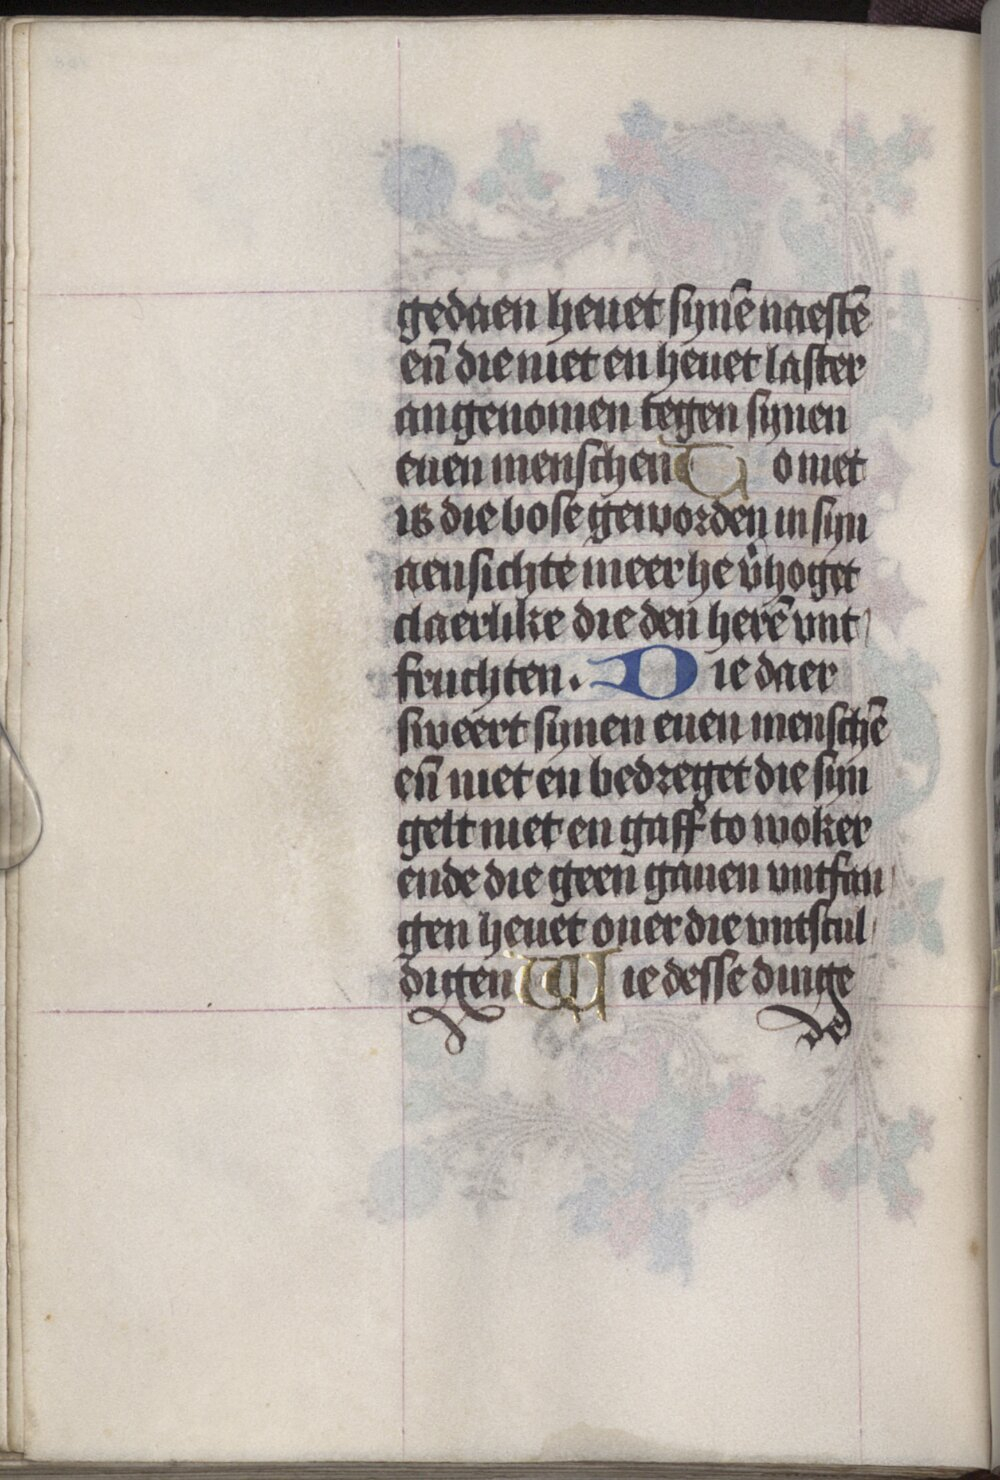 gedaen heuet synē naestē
eñ die niet en heuet laster
angenomen tegen synen
euen menschen To niet
is die bose geworden in syn
aensichte meer he v̾hoget
claerlike die den herē vnt
fruchten. Die daer
sweert synen euen menschē
eñ niet en bedreget die syn
gelt niet en gaff to woker
ende die geen gauen vntfan
gen heuet ouer die vntscul
digen Wie desse dinge